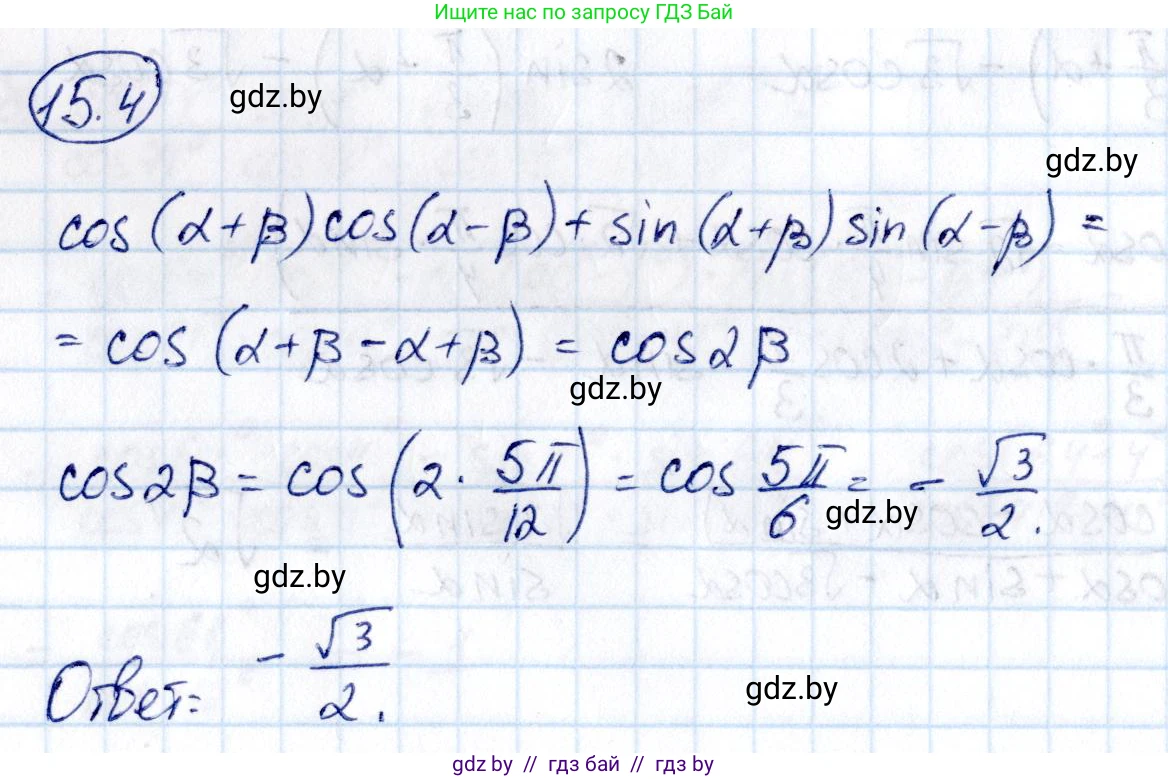 Ищите нас по запросу ГДЗ Бай
15.4 gdz.by
gdz.by
cos(α+β)cos(α-β)+sin(α+β)sin(α-β)=
= cos(α+β-α+β) = cos2β
gdz.by
cos2β = cos(2·5π/12) = cos 5π/6 = -√3/2.
gdz.by
gdz.by
Ответ: -√3/2.
gdz.by
gdz.by // гдз бай // гдз by